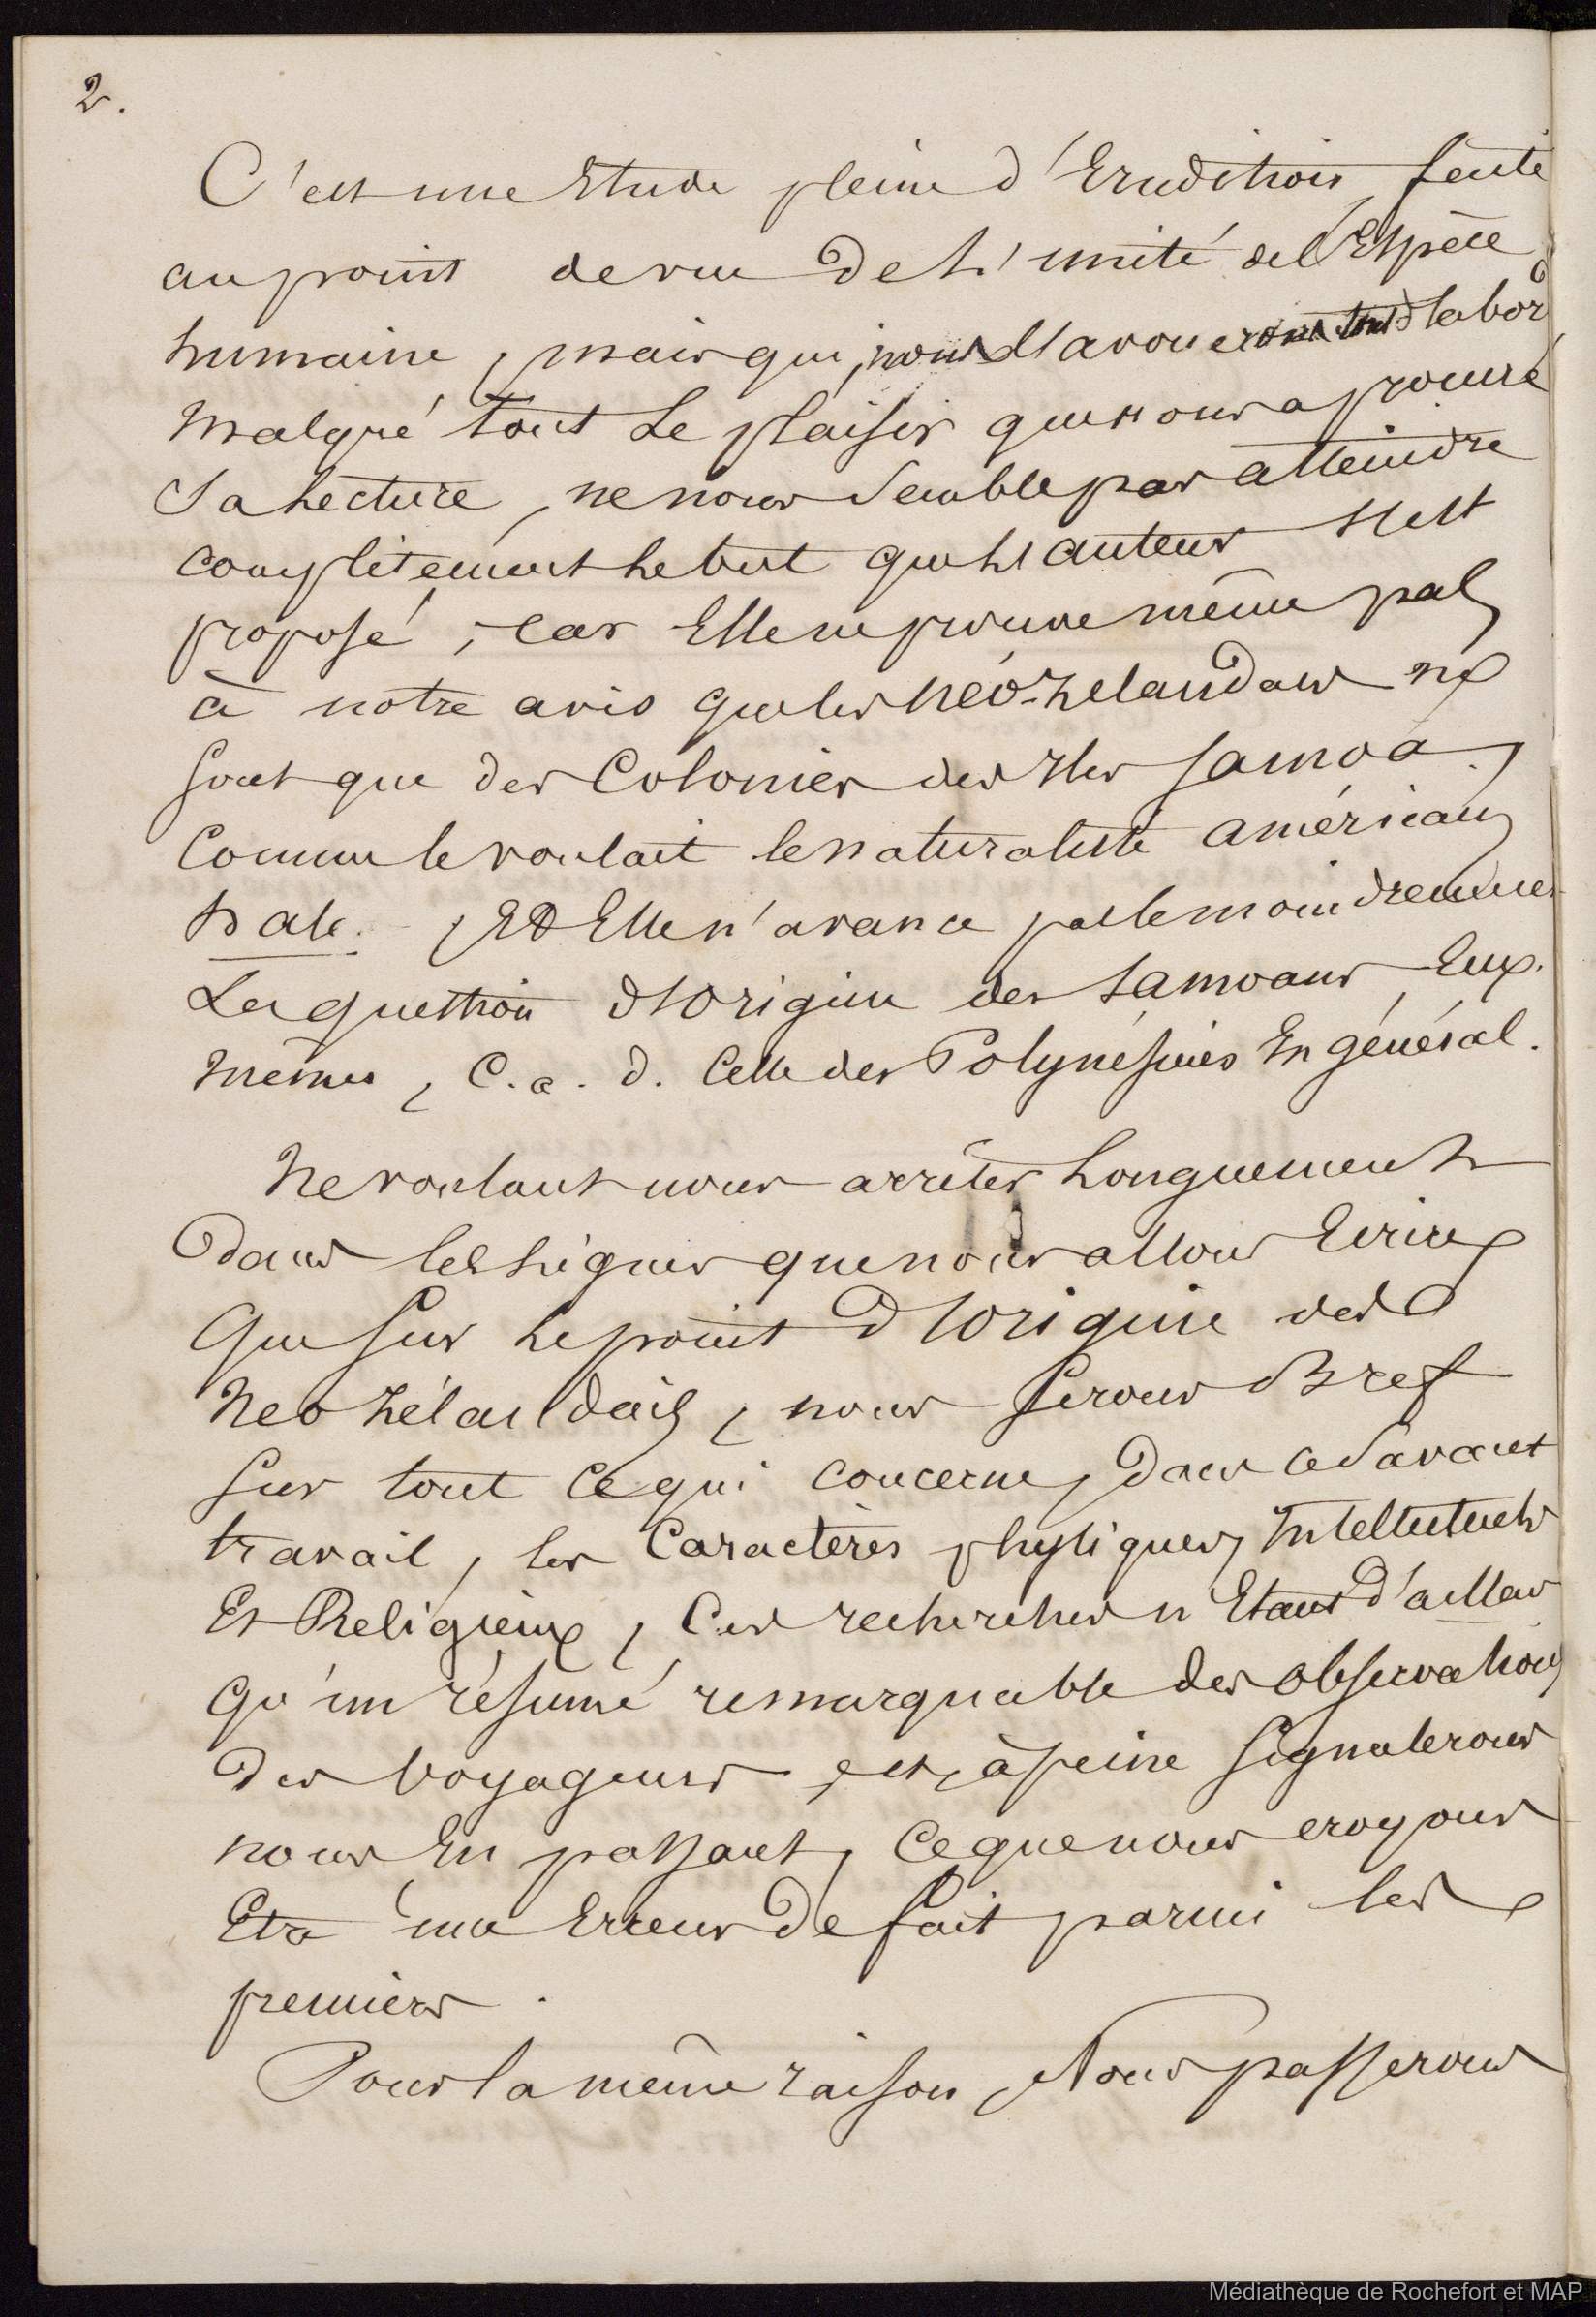 2.
C'est une Etude pleine d'Erudition, faite
au point de vue De L'unité de l'Espèce
humaine, mais qui, nous L'avouerons tout d'abord
malgré tout Le plaisir que nous a procuré
Sa Lecture, ne nous Semble pas atteindre
complètement Le but que L'auteur s'est
proposé, car Elle ne prouve même pas,
à notre avis que les Néo-Zelandais ne
sont que des Colonies des Iles Samoa,
Comme le voulait le naturaliste américain
Hale. Et Elle n'avance pas le moindrement
La question d'Origine des Samoans Eux.
mêmes, C. a. d. Celle des Polynésiens En général.
Ne voulant nous arrêter Longuement
Dans les Lignes que nous allons Ecrire
Que sur Le point D'Origine des
Neo Zélandais, nous serons Bref
sur tout ce qui concerne, Dans ce Savant
travail, les Caractères physiques, Intellectuels
Et Religieux, Ces recherches n'Etant d'ailleurs
Qu'un résumé remarquable des observations
Des Voyageurs et, à peine signalerons
nous En passant, Ce que nous croyons
Etre une Erreur De fait parmi les
premiers.
Pour la même raison, Nous passerons
Médiathèque de Rochefort et MAP